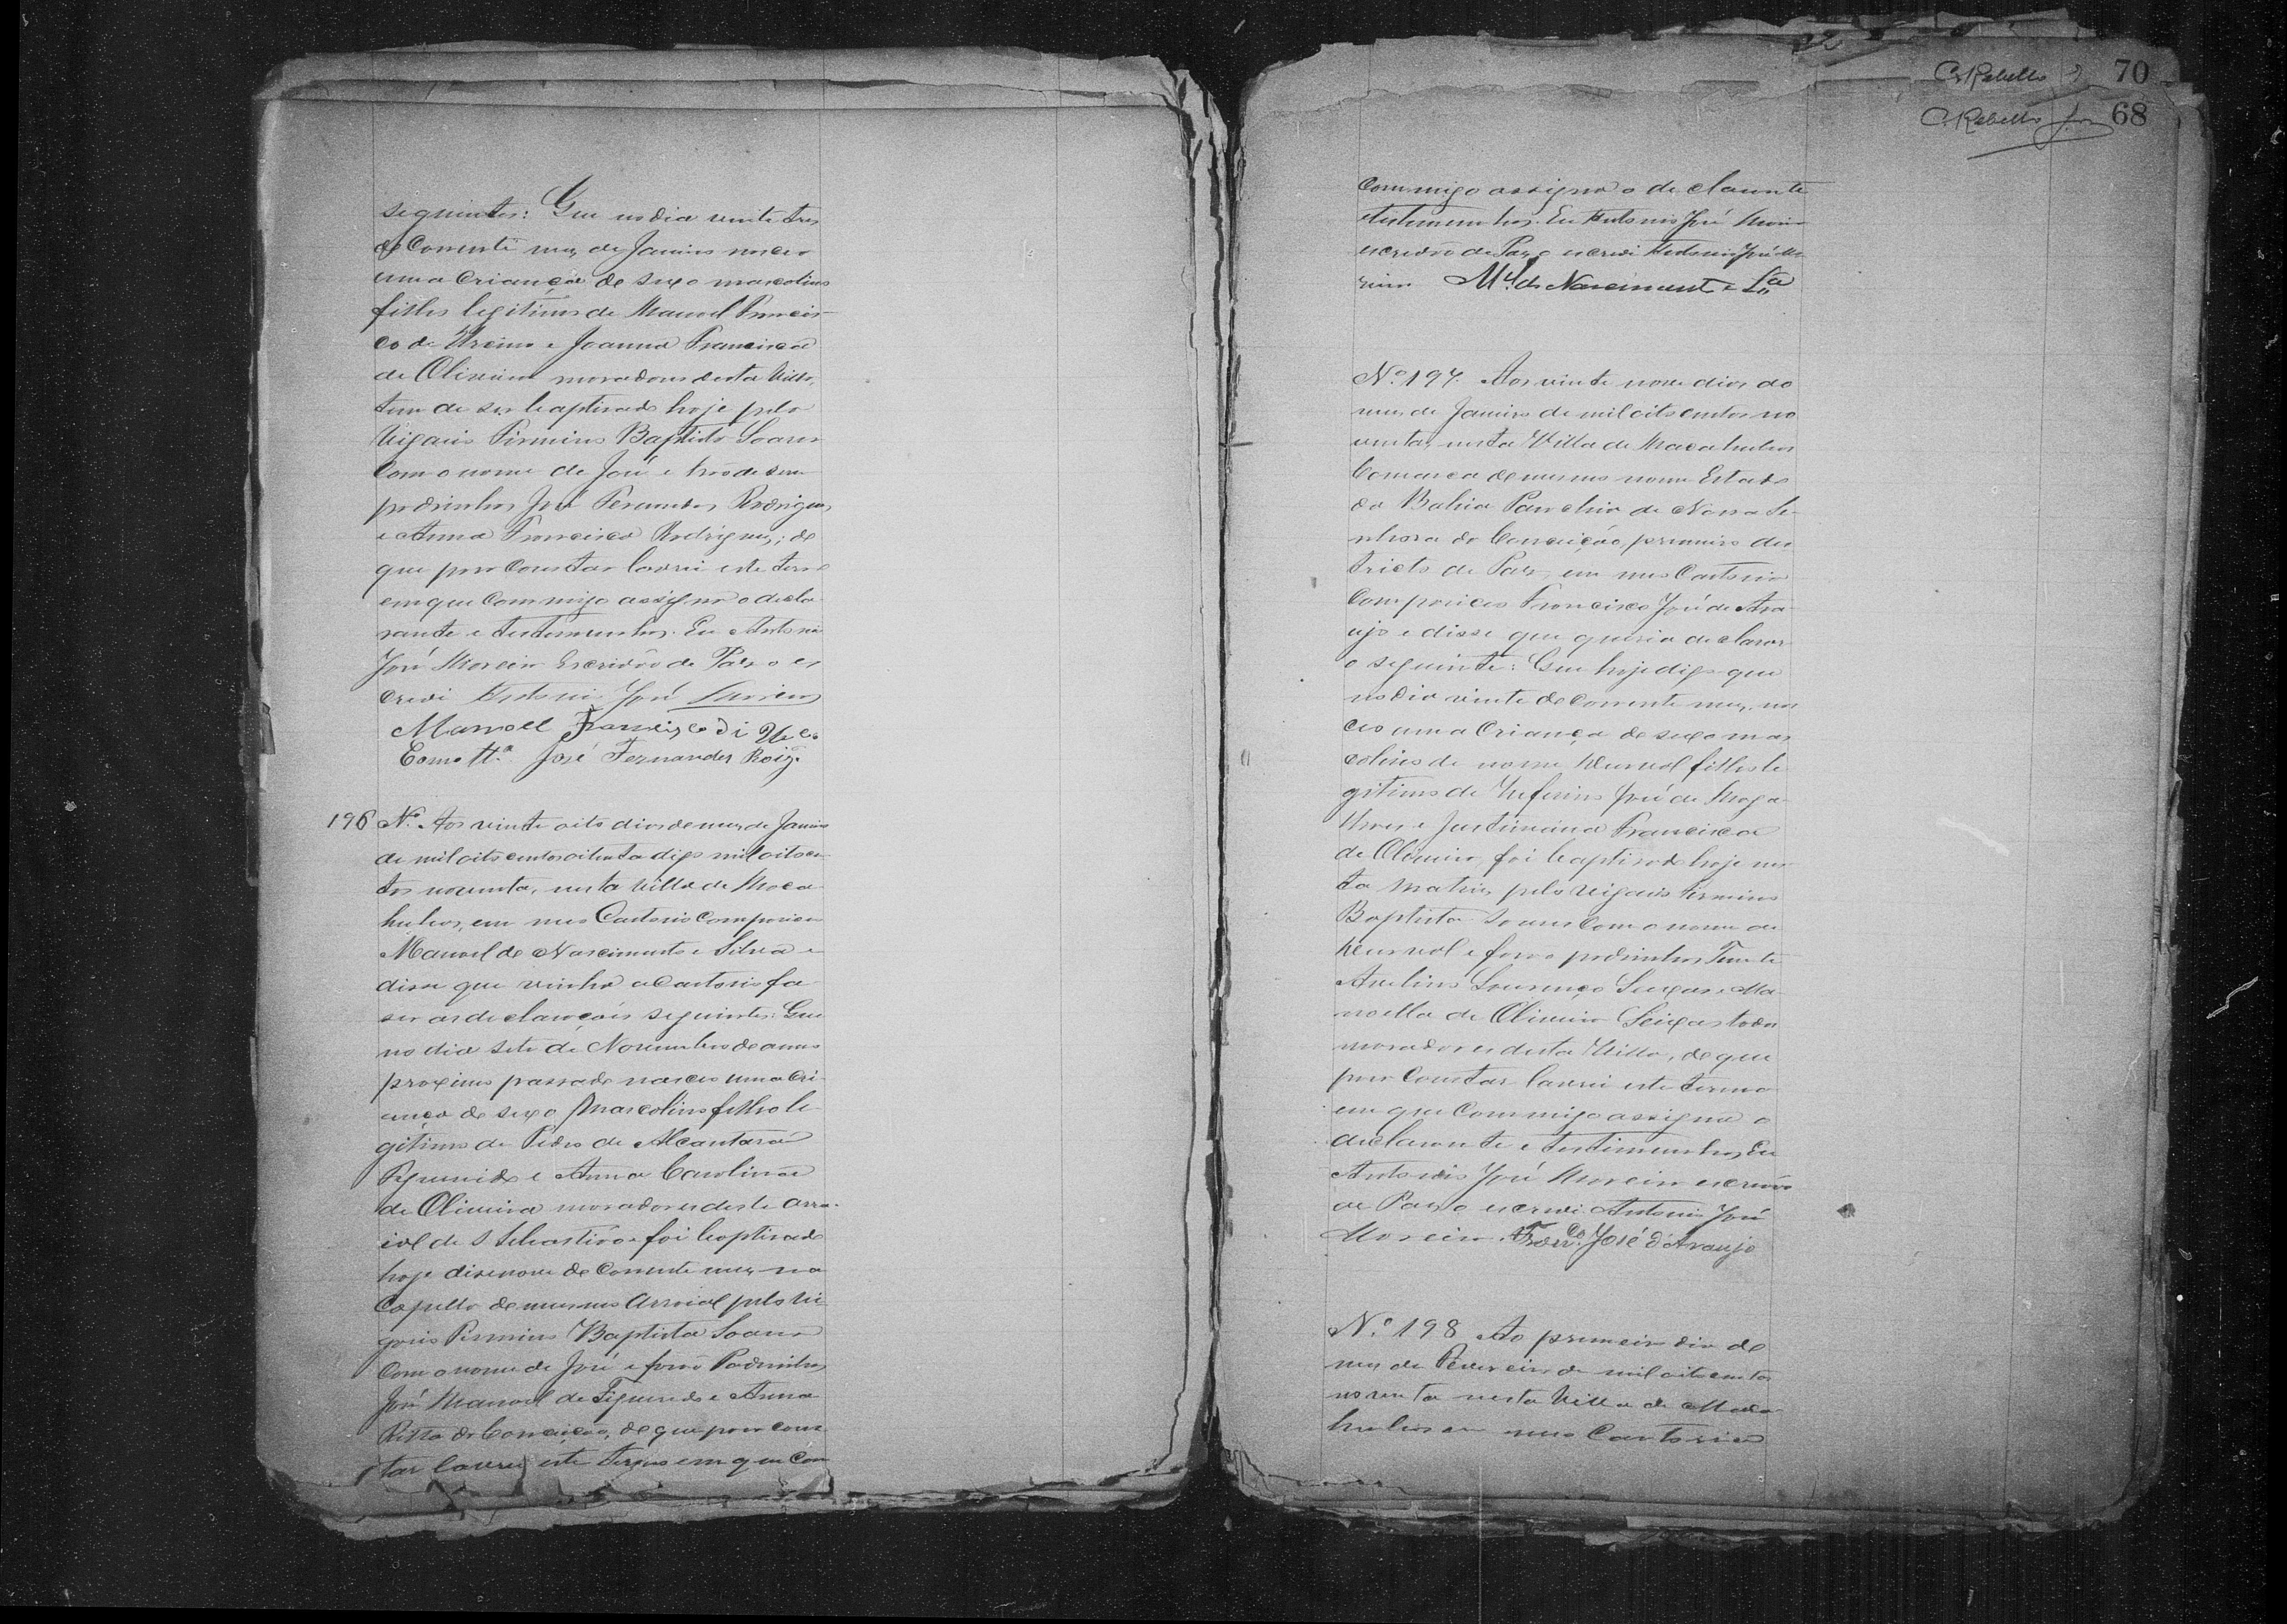 seguintes: Que no dia vinte tres
do Corrente mez de Janeiro nasceu
uma Criança de sexo mascolino
filho legitimo de Manoel Francis-
co de e Joanna Francisca
de Oliveira moradores desta Villa,
tem de ser baptisado hoje pelo
Vigario Firmino Baptista Soares
Com o nome de José e hão de serem
padrinhos José Fernandes Rodrigues
e Anna Francisca Rodrigues; do
que para Constar lavrei este termo
em que Commigo assigna o decla-
rante e testemunhas. Eu Antonio
José Moreira Escrivão de Paz o es
crevi Antonio José Moreira
Manoel Francisco di
Como tta. José Fernandes Roiz.
196 No. Aos vinte oito dias do mez de Janeiro
de mil oito centos oitenta digo mil oitocen
tos noventa, nesta Villa de Maca-
hubas, em meu Cartorio Compareceu
Manoel do Nascimento e Silva e
disse que vinha a Cartorio fa
ser as declarações seguintes: Que
no dia sete de Novembro do anno
proximo passado nasceu uma Cri-
ança de sexo Mascolino filho le-
gitimo de Pedro de Alcantara
Figueiredo e Anna Carolina
de Oliveira moradores deste arra-
ial de S Sebastião foi baptisado
hoje disenove do Corrente mez na
Capella do mesmo Arraial pelo Vi
gario Firmino Baptista Soares
Com o nome de José e forão Padrinhos
José Manoel de Figueiredo e Anna
Ritta da Conceição, do que para cons
tar lavrei este termo em que Com
C. Rebello 70
C. Rebello 68
Commigo assigna o declarante
e testemunhas. Eu Antonio José Morei
escrivão de Paz o escrevi Antonio José Mo
reira Mel. do Nascimento e Sa
No. 197. Aos vinte nove dias do
mez de Janeiro de mil oito centos no
venta, nesta Villa de Macahubas
Comarca do mesmo nome Estado
da Bahia Parochia de Nossa Se-
nhora da Conceição, primeiro dis
tricto de Paz, em meu Cartorio
Compareceu Francisco José de Ara-
ujo e disse que queria declarar
o seguinte: Que hoje digo que
no dia vinte do corrente mez, nas
ceu uma Criança de sexo mas
colino de nome filho le
gitimo de José de Maga-
lhaes e Justiniana Francisca
de Oliveira, foi baptisado hoje nes
ta Matriz pelo Vigario Firmino
Baptista Soares Com o nome de
e forão padrinhos Tenente
Avelino Lourenço Seixas e Ma-
noella de Oliveira Seixas todos
moradores desta Villa, do que
para Constar lavrei este termo
em que Commigo assigna o
declarante e testimunhas, Eu
Antonio José Moreira escrivão
de Paz o escrevi. Antonio José
Moreira. Franco. José d'Araujo
No. 198 Ao primeiro dia do
mez de Fevereiro de mil oito centos
noventa nesta Villa de Maca
hubas em meu Cartorio